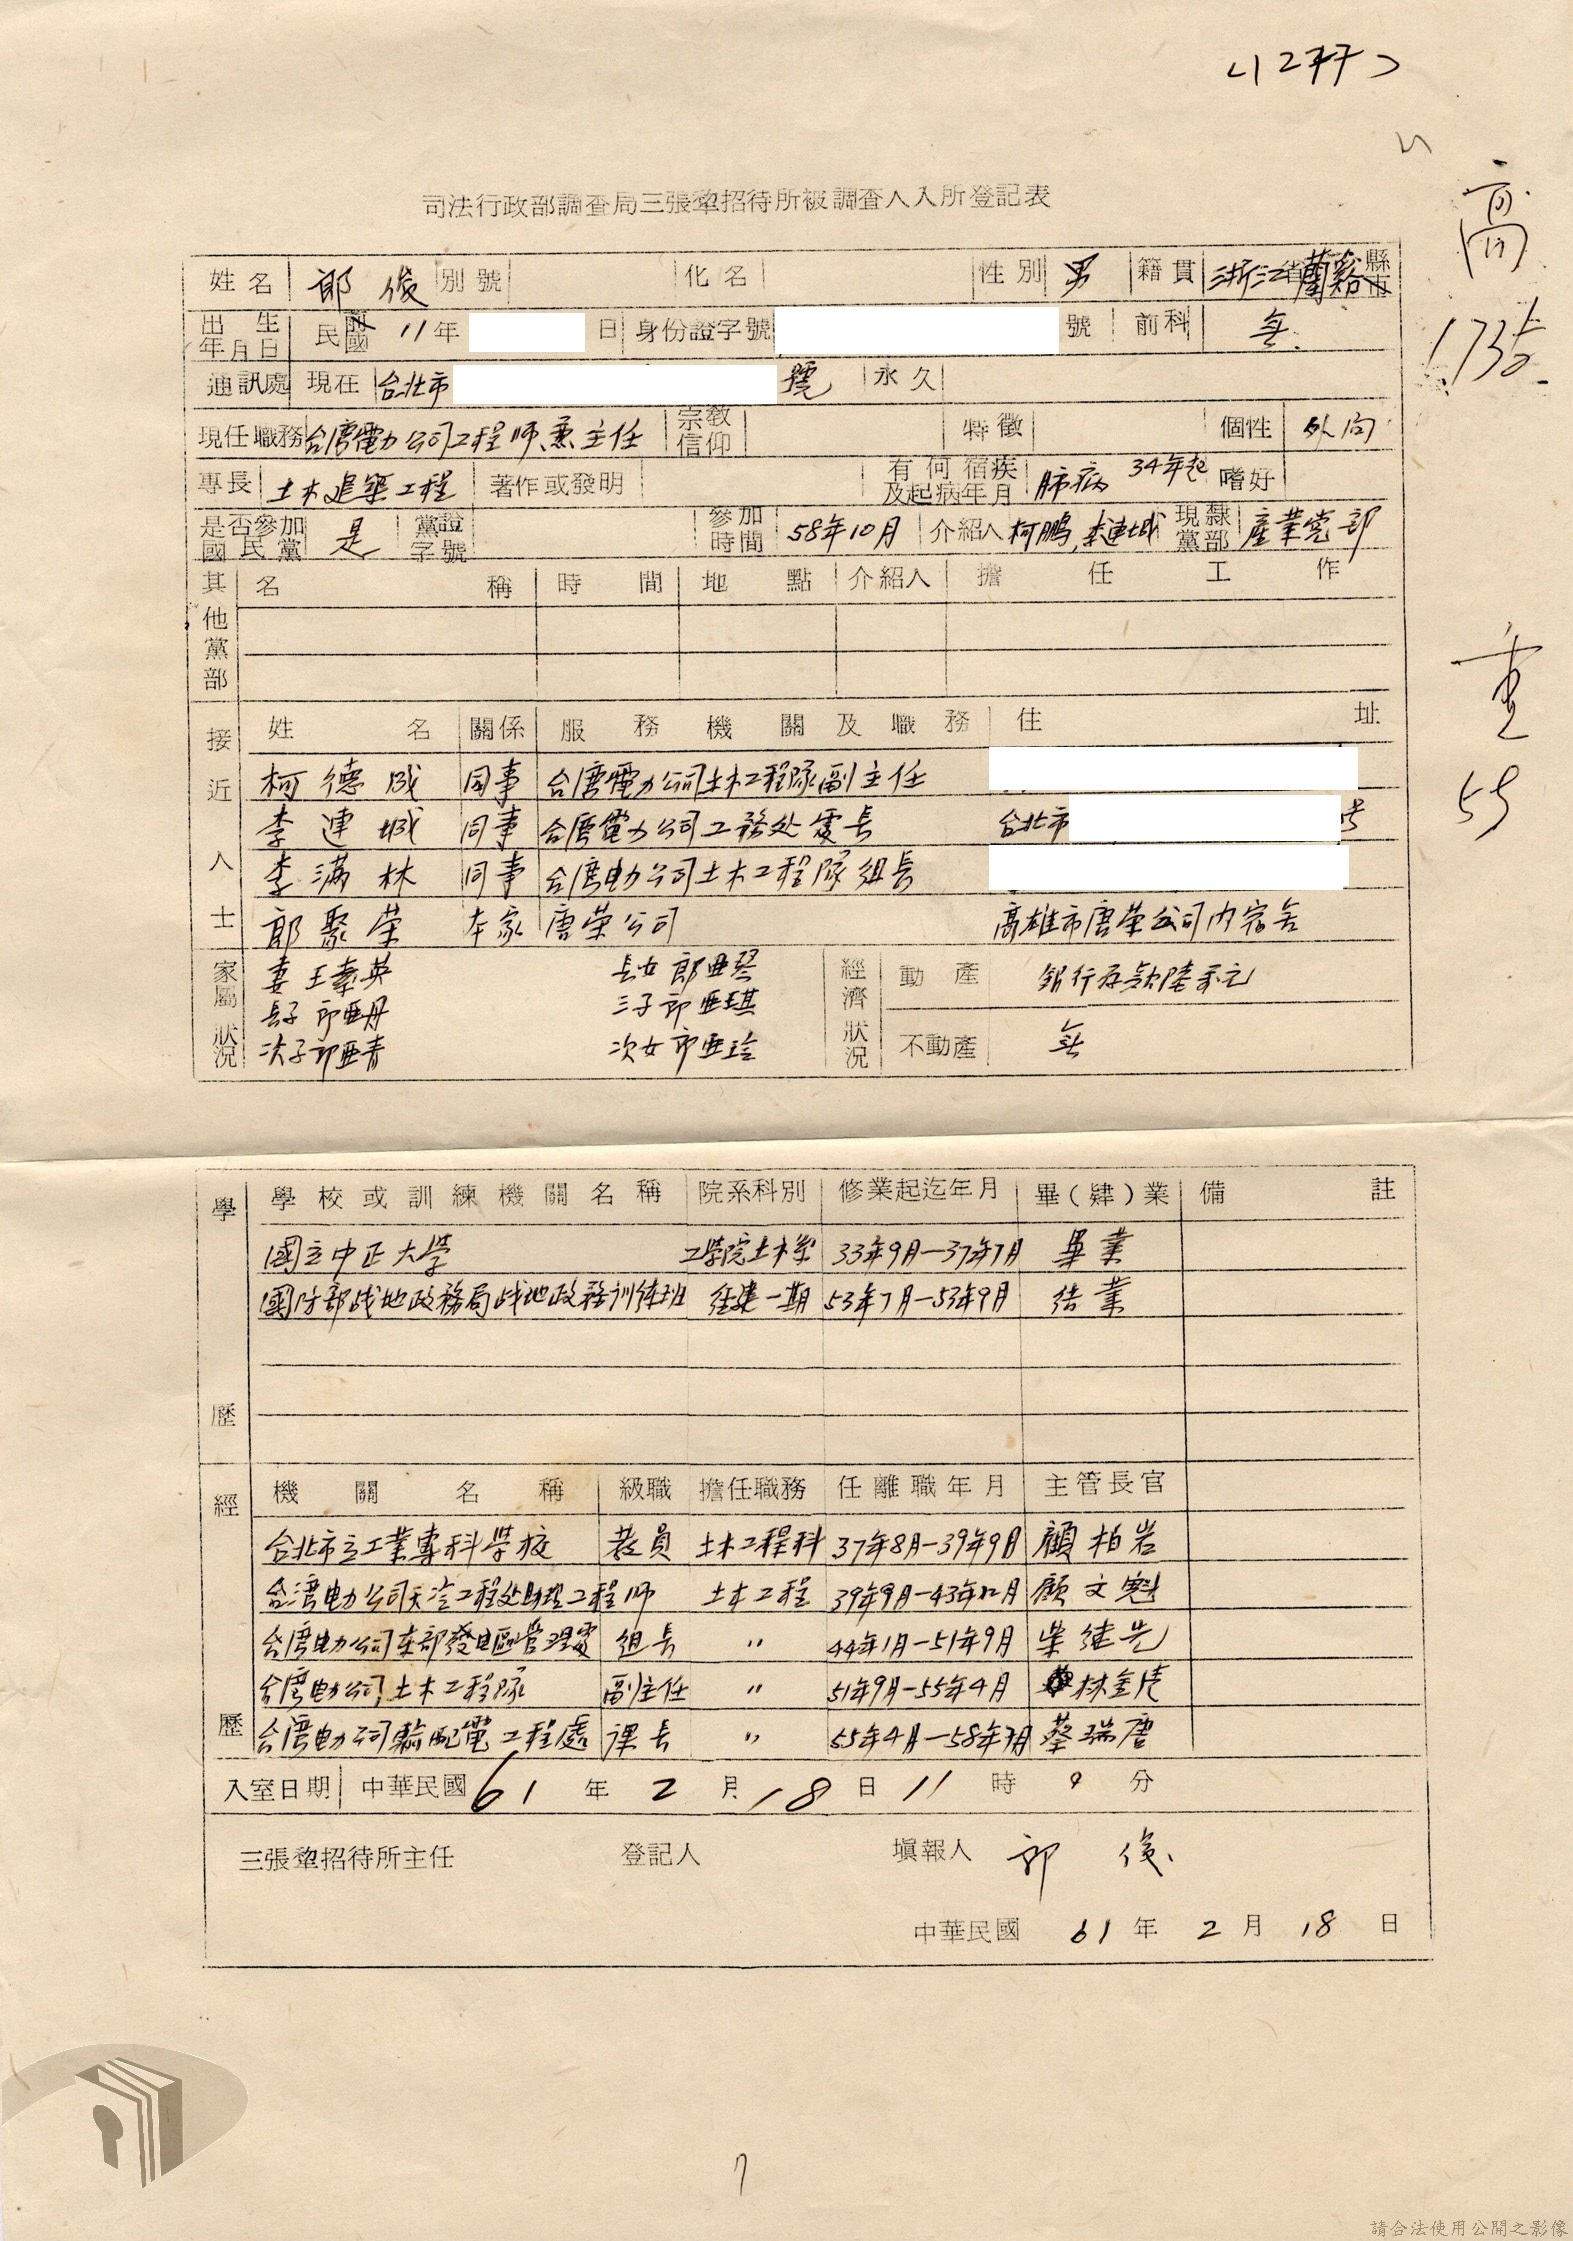 (1277)
高
173公分
重
55
司法行政部調查局三張犂招待所被調查人入所登記表
姓名 郎俊 別號 化名 性別 男 籍貫 浙江省蘭谿縣市
出生年月日 民前國 11年 日 身份證字號 號 前科 無
通訊處 現在 台北市 號 永久
現任職務 台灣電力公司工程師兼主任 宗教信仰 特徵 個性 外向
專長 土木建築工程 著作或發明 有何宿疾及起病年月 肺病 34年起 嗜好
是否參加國民黨 是 黨證字號 參加時間 58年10月 介紹人 柯鵬,李連城 現隸黨部 產業党部
其他黨部 名稱 時間 地點 介紹人 擔任工作
接近人士 姓名 關係 服務機關及職務 住址
柯德成 同事 台灣電力公司土木工程隊副主任
李連城 同事 台灣電力公司工務处處長 台北市 号
李滿林 同事 台灣电力公司土木工程隊組長
郎聚荣 本家 唐荣公司 高雄市唐荣公司内宿舍
家屬狀況 妻 王素英 長女 郎亜琴 經濟狀況 動產 銀行存款陸千元
長子 郎亜丹 三子 郎亜琪
次子 郎亜青 次女 郎亜玲 不動產 無
學歷 學校或訓練機關名稱 院系科別 修業起迄年月 畢(肄)業 備註
國立中正大學 工學院土木系 33年9月—37年7月 畢業
國防部战地政務局战地政務訓練班 經建一期 53年7月—53年9月 结業
經歷 機關名稱 級職 擔任職務 任離職年月 主管長官
台北市立工業專科學校 教員 土木工程科 37年8月—39年9月 顧柏岩
台湾电力公司天冷工程处助理工程師 土木工程 39年9月—43年12月 顧文魁
台灣电力公司東部發电區管理處 組長 〃 44年1月—51年9月 柴継光
台灣电力公司土木工程隊 副主任 〃 51年9月—55年4月 林金虎
台灣电力公司輸配電工程處 課長 〃 55年4月—58年7月 蔡瑞唐
入室日期 中華民國61年2月18日11時9分
三張犂招待所主任 登記人 填報人 郎俊
中華民國61年2月18日
7
請合法使用公開之影像